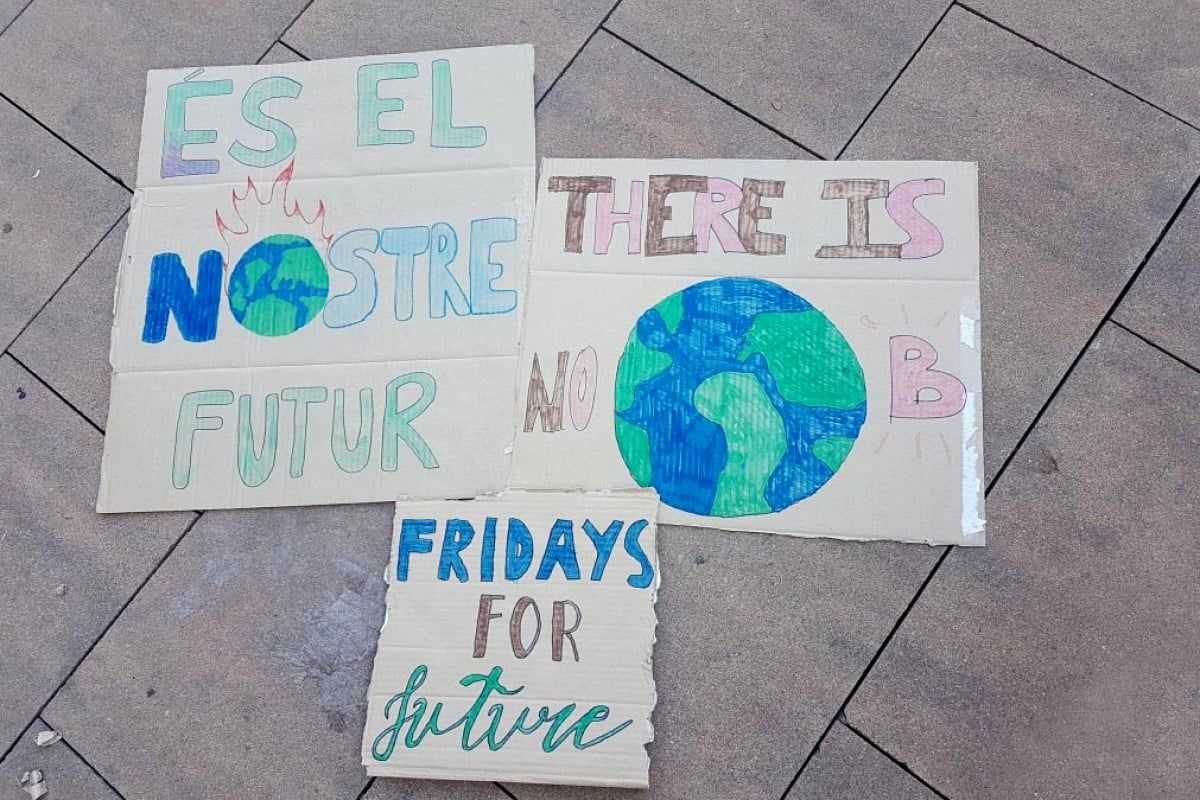 ÉS EL
NOSTRE
FUTUR
THERE IS
NO B
FRIDAYS
FOR
future